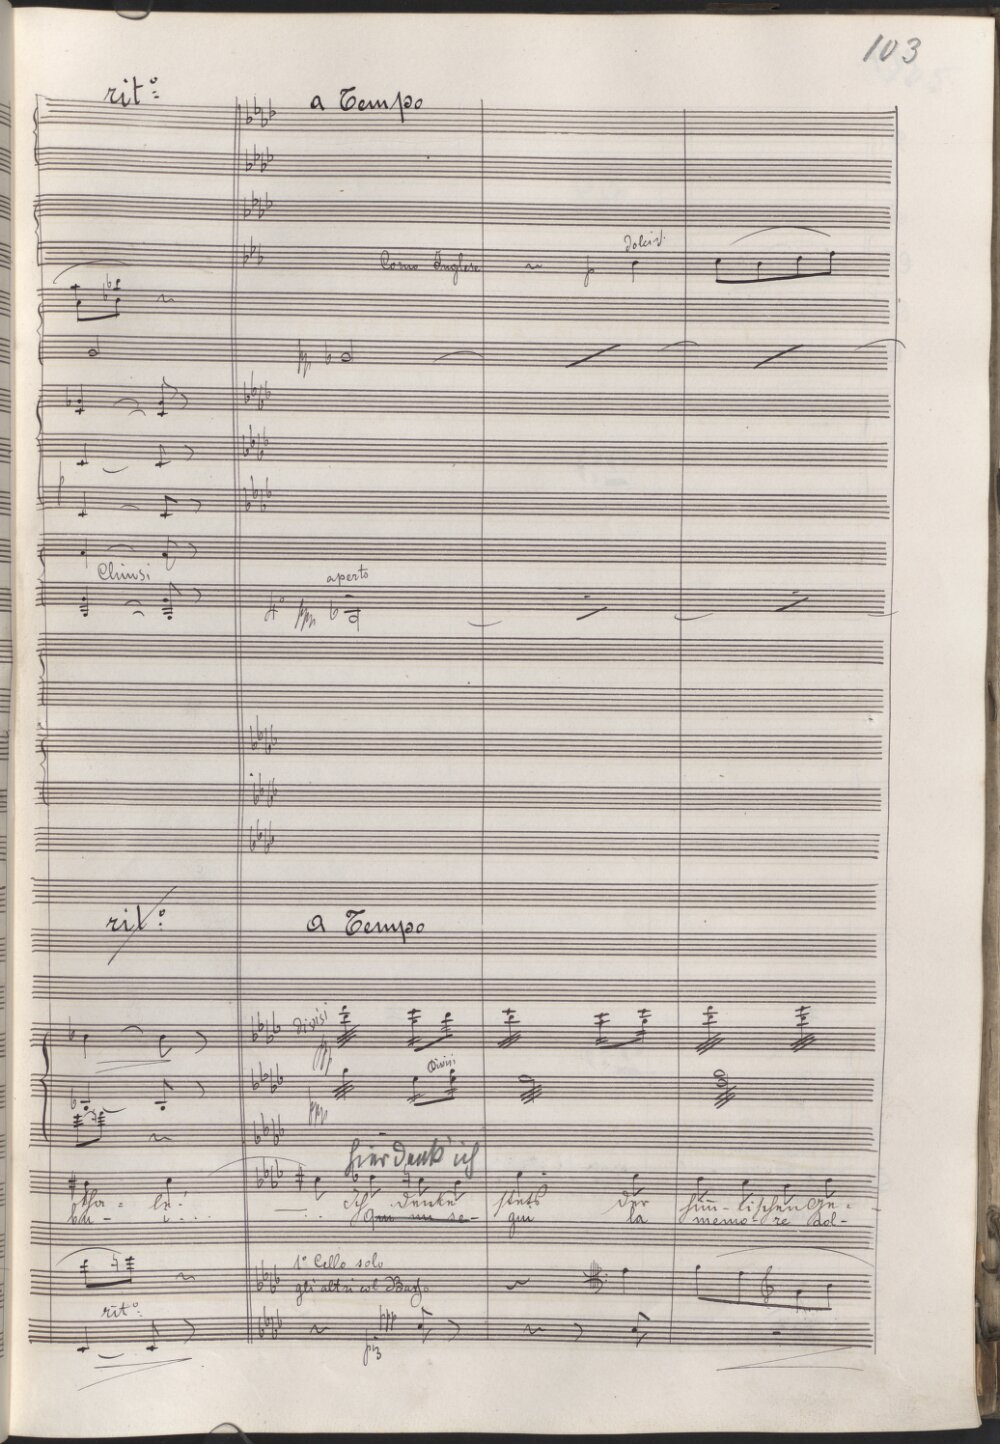 103
rit°:
a Tempo
dolciss.
Corno Inglese
pp
Chiusi
aperto
4° ppp
rit°:
a Tempo
divisi
pp
Divisi
ppp
hier denk' ich
tha - le! Ich denke stets der himm - lischen Ge -
Qui mi se - gui la memo - re dol -
1° Cello solo
gli altri col Basso
rit°:
ppp
piz